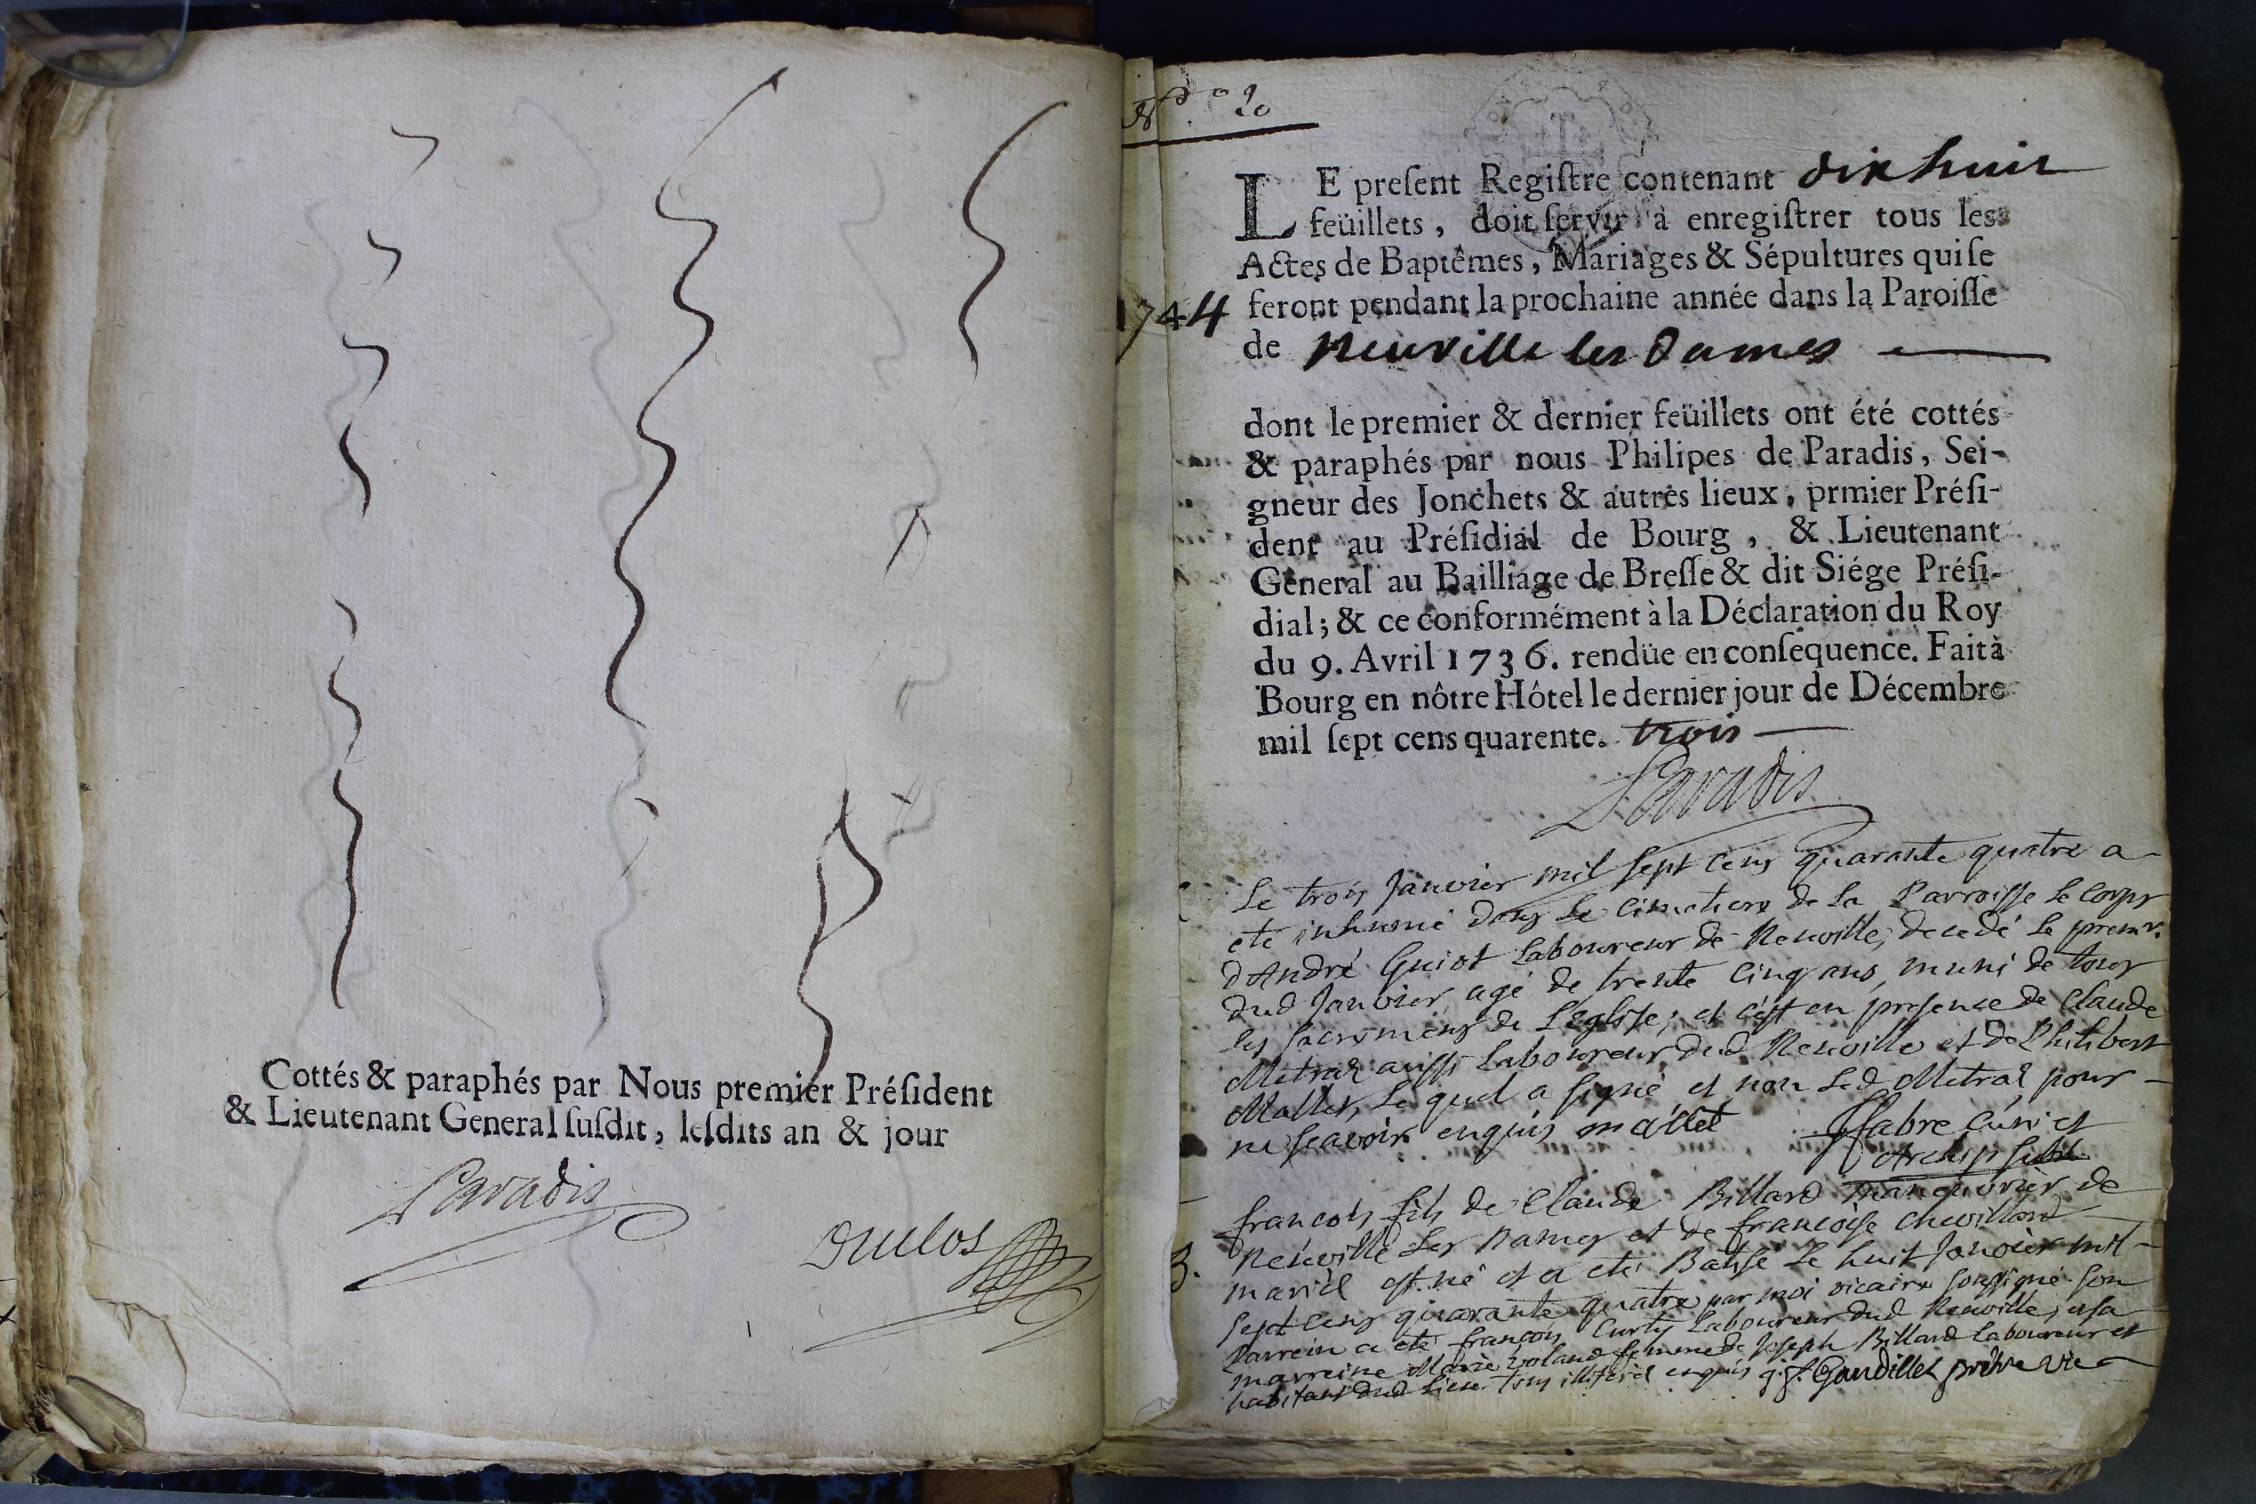 Cottés & paraphés par Nous premier Préſident
& Lieutenant General ſuſdit, leſdits an & jour
Paradis
Duclos
1744
LE preſent Regiſtre contenant dix huit
feüillets, doit ſervir à enregiſtrer tous les
Actes de Baptêmes, Mariages & Sépultures qui ſe
feront pendant la prochaine année dans la Paroiſſe
de Neuville les Dames
dont le premier & dernier feüillets ont été cottés
& paraphés par nous Philipes de Paradis, Sei-
gneur des Jonchets & autres lieux, prmier Préſi-
dent au Préſidial de Bourg, & Lieutenant
General au Bailliage de Breſſe & dit Siége Préſi-
dial; & ce conformément à la Déclaration du Roy
du 9. Avril 1736. rendüe en conſequence. Fait à
Bourg en nôtre Hôtel le dernier jour de Décembre
mil ſept cens quarente. trois
Paradis
Le trois Janvier mil sept cens quarante quatre a
eté inhumé dans le cimetiere de la Parroisse le corps
d'André Guiot Laboureur de Neuville, decedé le premr.
dud Janvier, agé de trente cinq ans, muni de tous
les sacremens de L'eglise; et c'est en presence de Claude
Metral aussi Laboureur dud Neuville et de Philibert
Mallet, le quel a signé et non led Metral pour
ne sçavoir enquis mallet Fabre Curé et
Archip
francois fils de Claude Billard manouvrier de
Neuville les Dames et de francoise chevillard
mariés est né et a eté Batisé le huit Janvier mil
sept cens quarante quatre par moi vicaire soussigné son
Parrein a eté francois Curty Laboureur dud Neuville, et sa
marreine Marie voland femme de Joseph Billard laboureur et
habitant dud Lieu tous illiterés enquis g. f. Gaudillet prêtre vic
B.